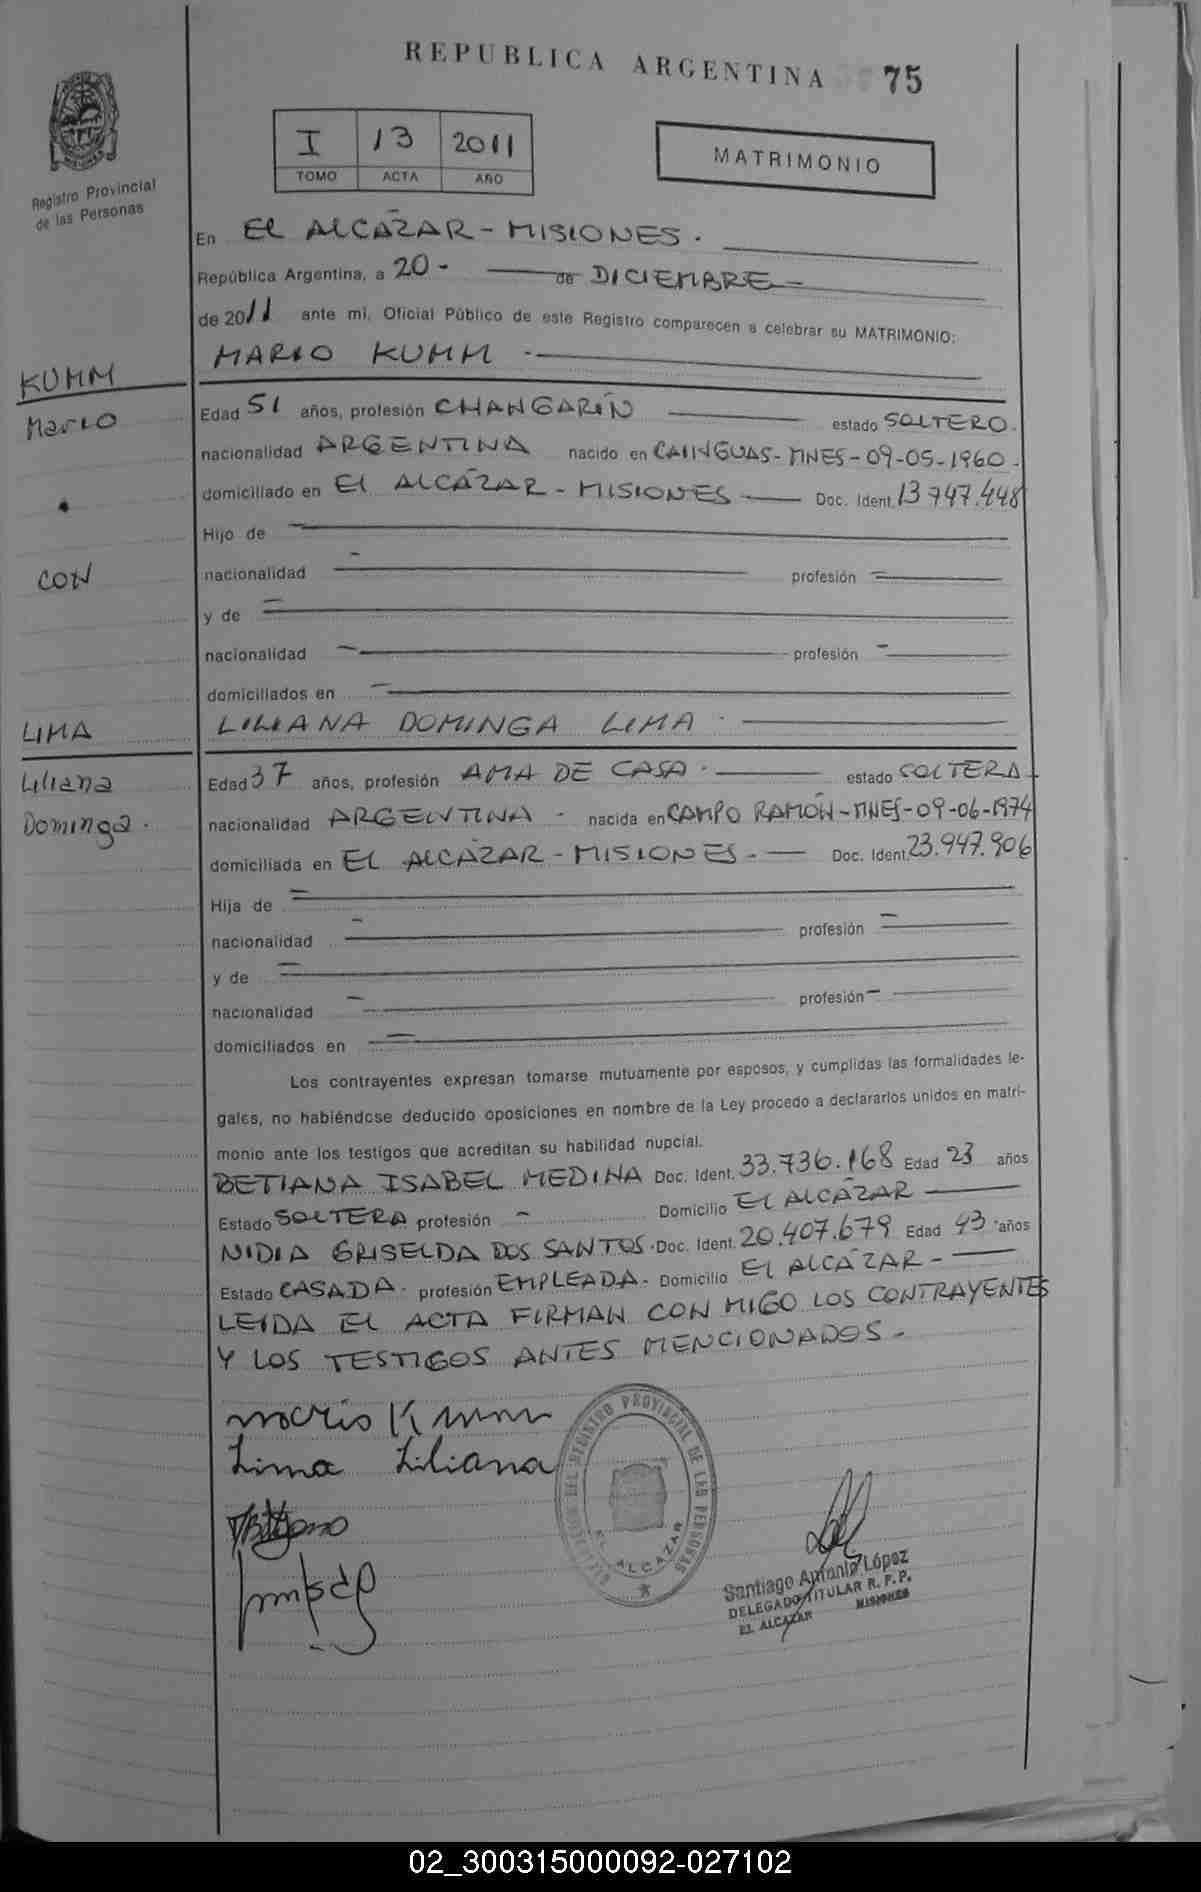 REPUBLICA ARGENTINA 75
Registro Provincial
de las Personas
I 13 2011
TOMO ACTA AÑO
MATRIMONIO
En EL ALCAZAR - MISIONES.
República Argentina, a 20 - de DICIEMBRE -
de 2011 ante mí, Oficial Público de este Registro comparecen a celebrar su MATRIMONIO:
MARIO KUMM -
KUMM
Mario
CON
Edad 51 años, profesión CHANGARÍN estado SOLTERO.
nacionalidad ARGENTINA nacido en CAINGUAS - MNES - 09-05-1960.
domiciliado en El ALCAZAR - MISIONES Doc. Ident. 13 747.448
Hijo de -
nacionalidad - profesión -
y de -
nacionalidad - profesión -
domiciliados en -
LILIANA DOMINGA LIMA.
LIMA
Liliana
Dominga.
Edad 37 años, profesión AMA DE CASA. estado SOLTERA
nacionalidad ARGENTINA - nacida en CAMPO RAMÓN - MNES - 09-06-1974
domiciliada en EL ALCAZAR - MISIONES. Doc. Ident. 23.947.906
Hija de -
nacionalidad - profesión -
y de -
nacionalidad - profesión -
domiciliados en -
Los contrayentes expresan tomarse mutuamente por esposos, y cumplidas las formalidades le-
gales, no habiéndose deducido oposiciones en nombre de la Ley procedo a declararlos unidos en matri-
monio ante los testigos que acreditan su habilidad nupcial.
BETIANA ISABEL MEDINA Doc. Ident. 33.736.168 Edad 23 años
Estado SOLTERA profesión - Domicilio El ALCAZAR
NIDIA GRISELDA DOS SANTOS. Doc. Ident. 20.407.679 Edad 43 años
Estado CASADA. profesión EMPLEADA. Domicilio El ALCAZAR -
LEIDA EL ACTA FIRMAN CON MIGO LOS CONTRAYENTES
Y LOS TESTIGOS ANTES MENCIONADOS -
mario Kumm
Lima Liliana
DEL REGISTRO PROVINCIAL DE LAS PERSONAS
EL ALCAZAR
Santiago Antonio López
DELEGADO TITULAR R. P. P.
EL ALCAZAR MISIONES
02_300315000092-027102